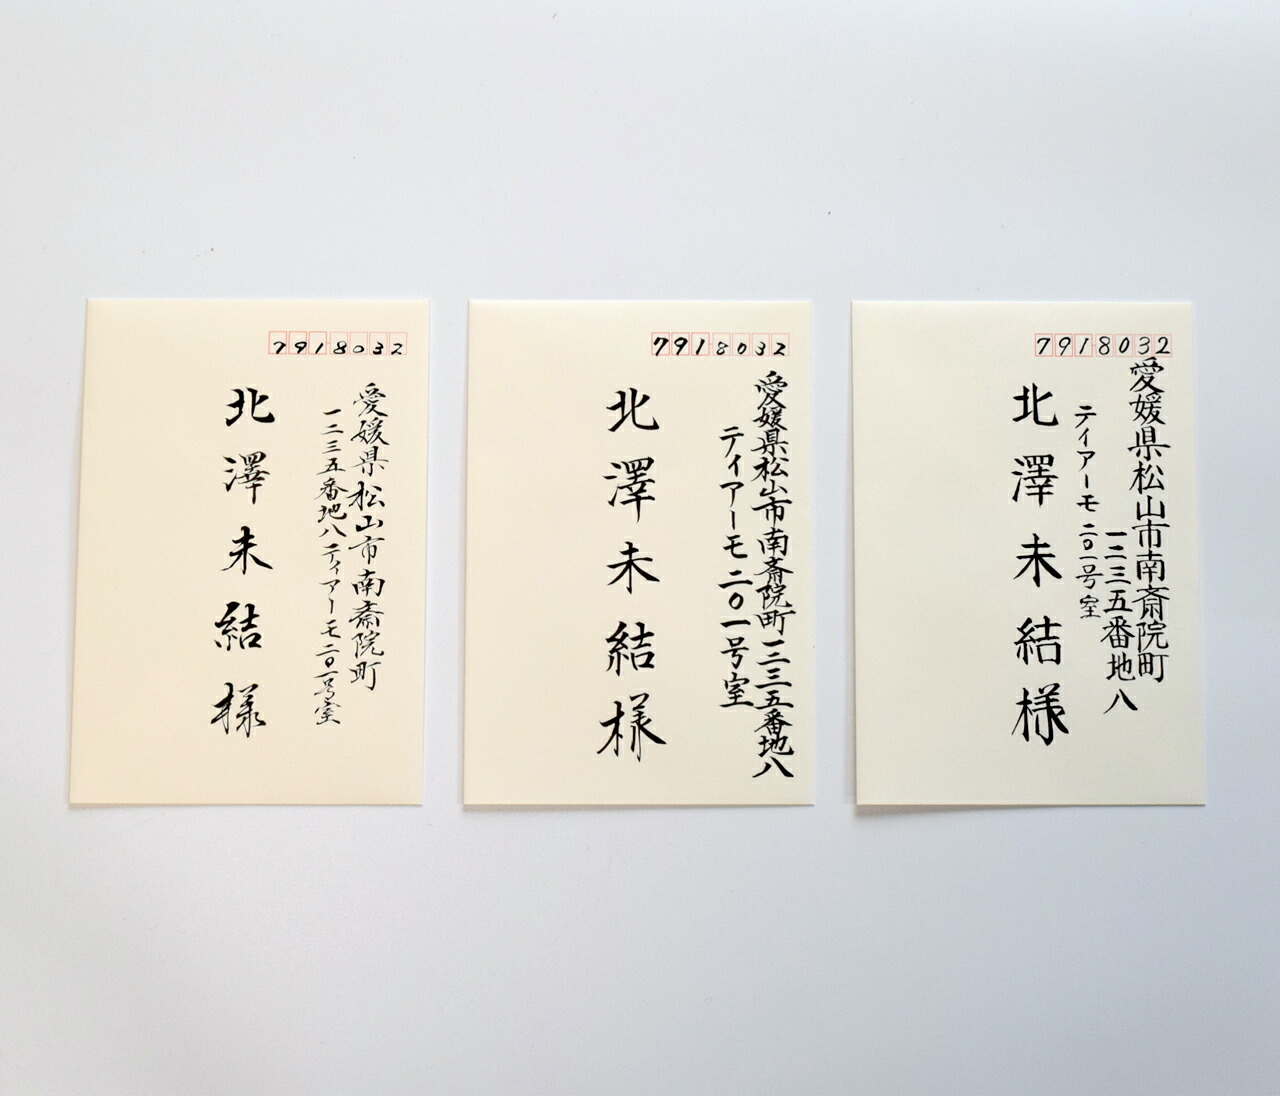 7918032
愛媛県松山市南斎院町
一二三五番地八ティアーモ二〇一号室
北澤未結様
7918032
愛媛県松山市南斎院町一二三五番地八
ティアーモ二〇一号室
北澤未結様
7918032
愛媛県松山市南斎院町
一二三五番地八
ティアーモ二〇一号室
北澤未結様